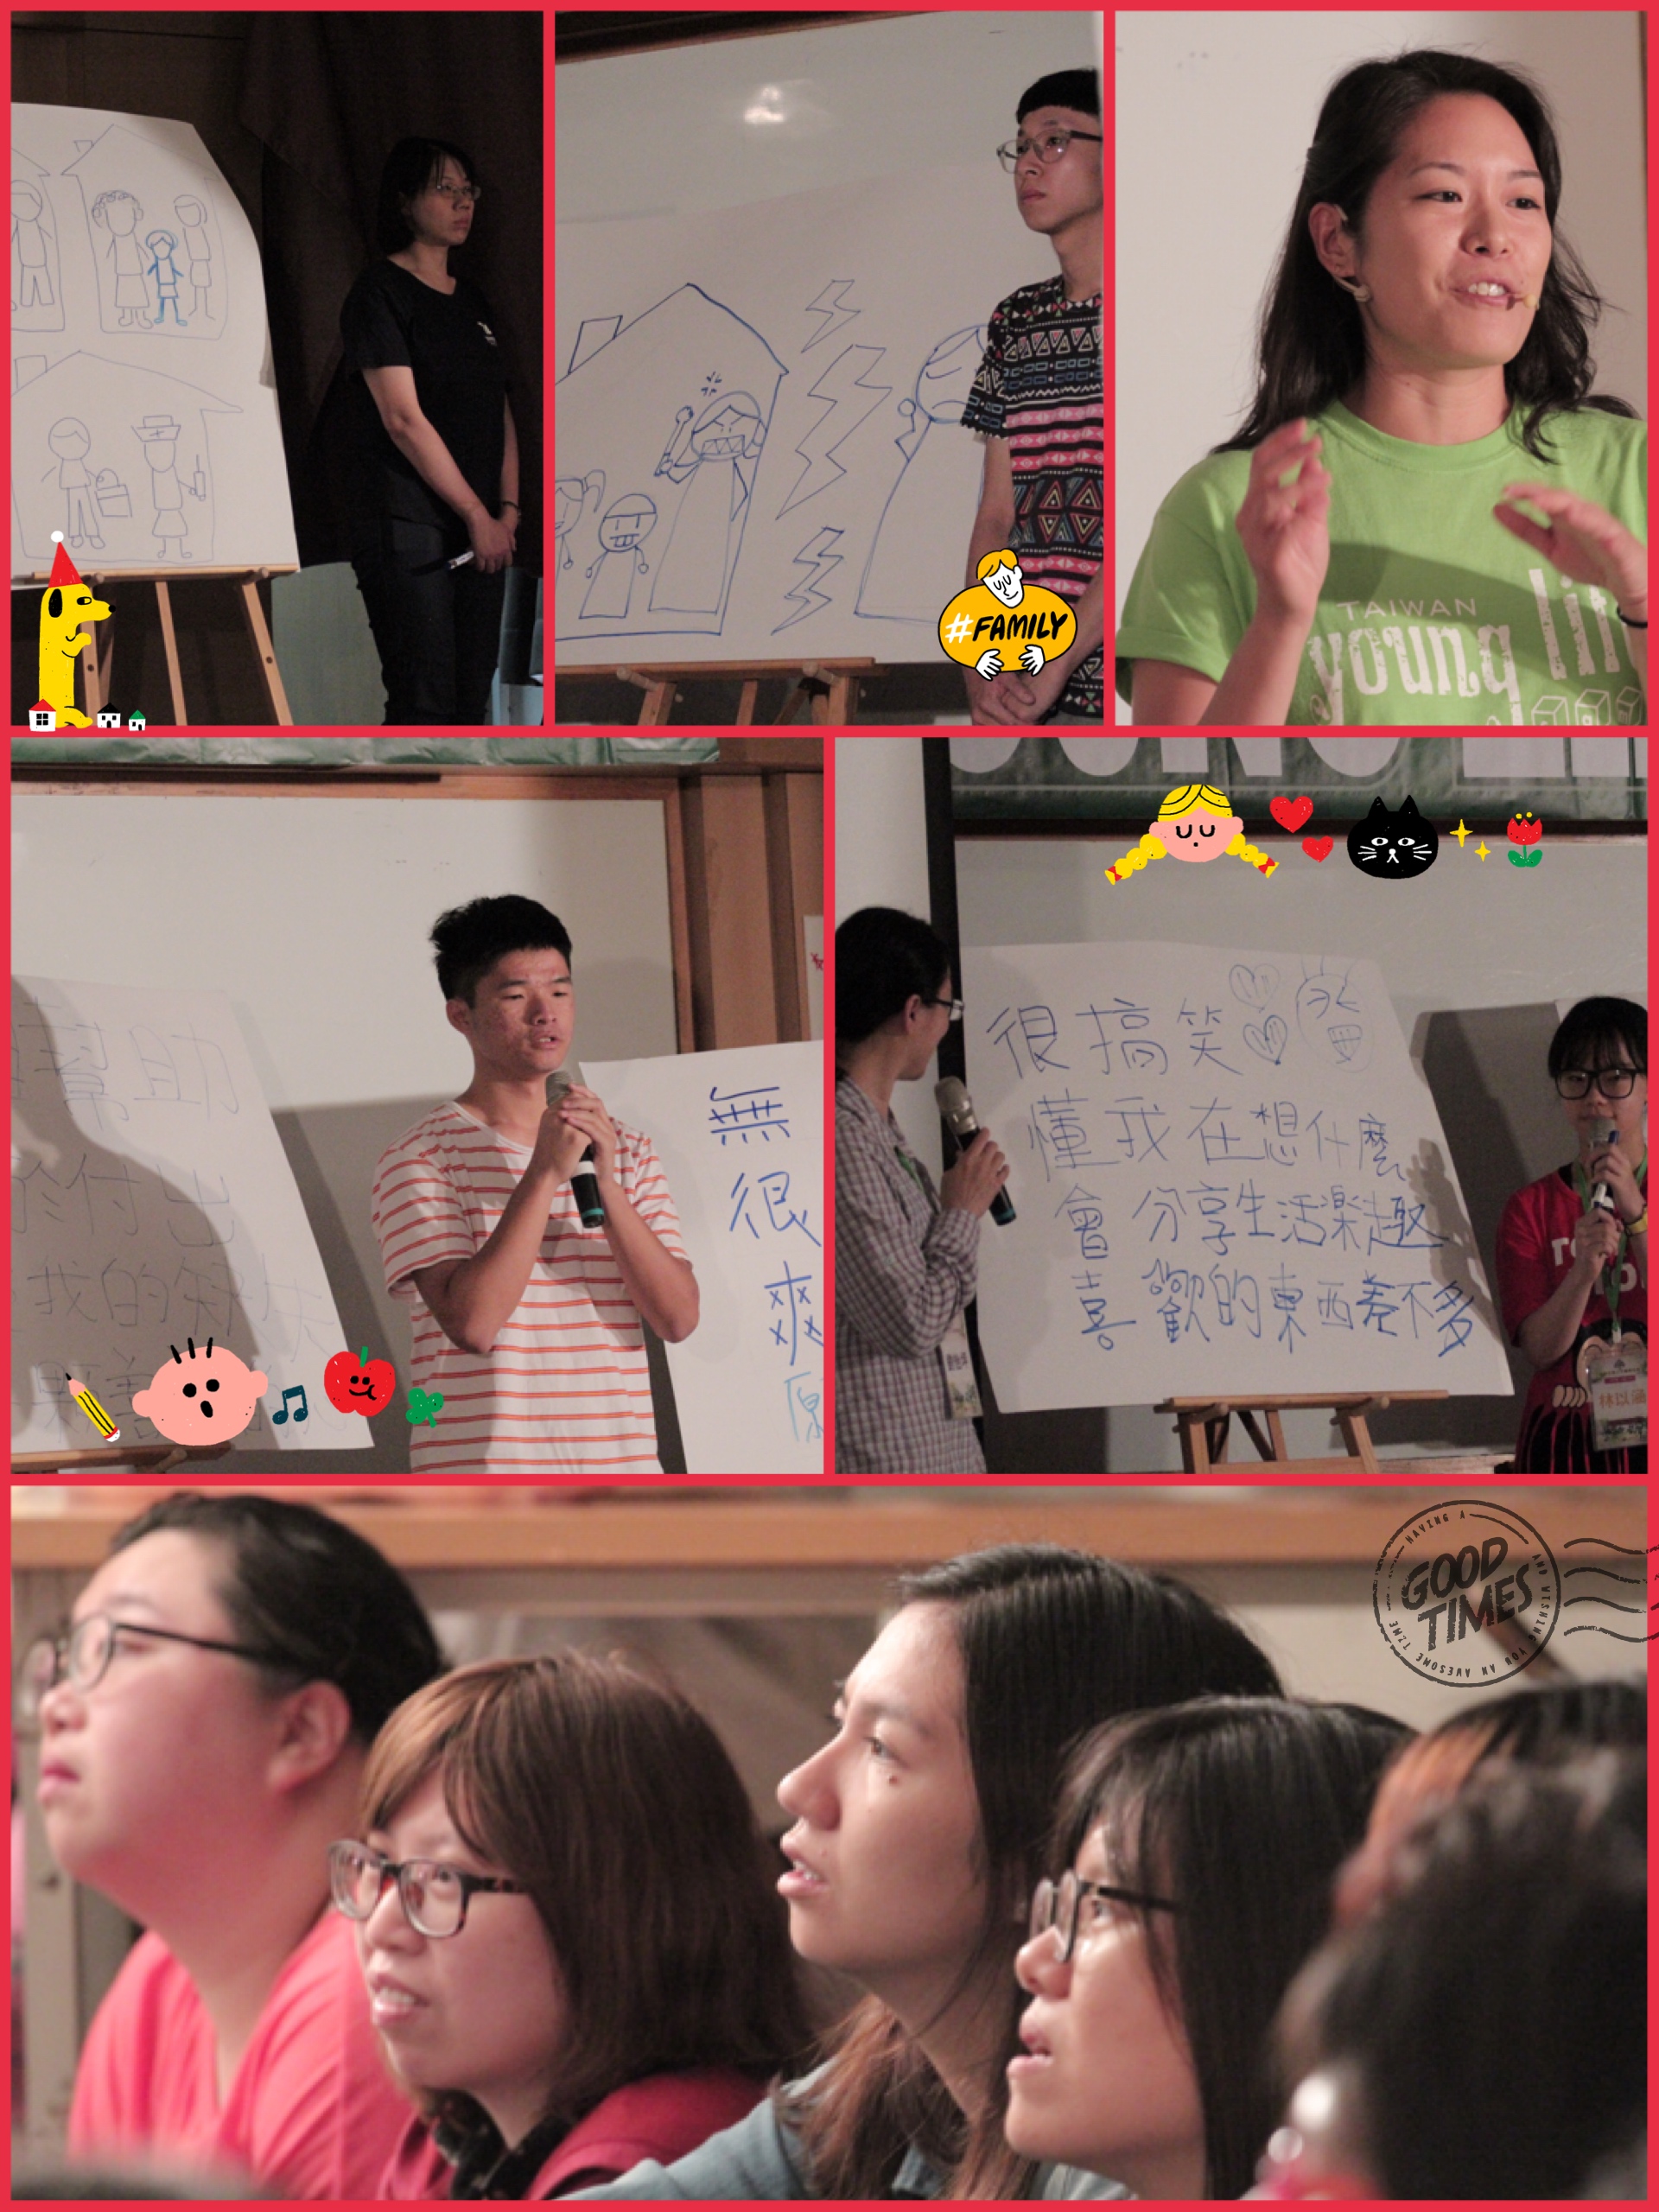 #FAMILY
TAIWAN
young life
幫助
於付出
我的缺失
無
很
爽
原
很搞笑
懂我在想什麼
會分享生活樂趣
喜歡的東西差不多
林以涵
HAVING A
GOOD
TIMES
AND WISHING YOU AN AWESOME TIME